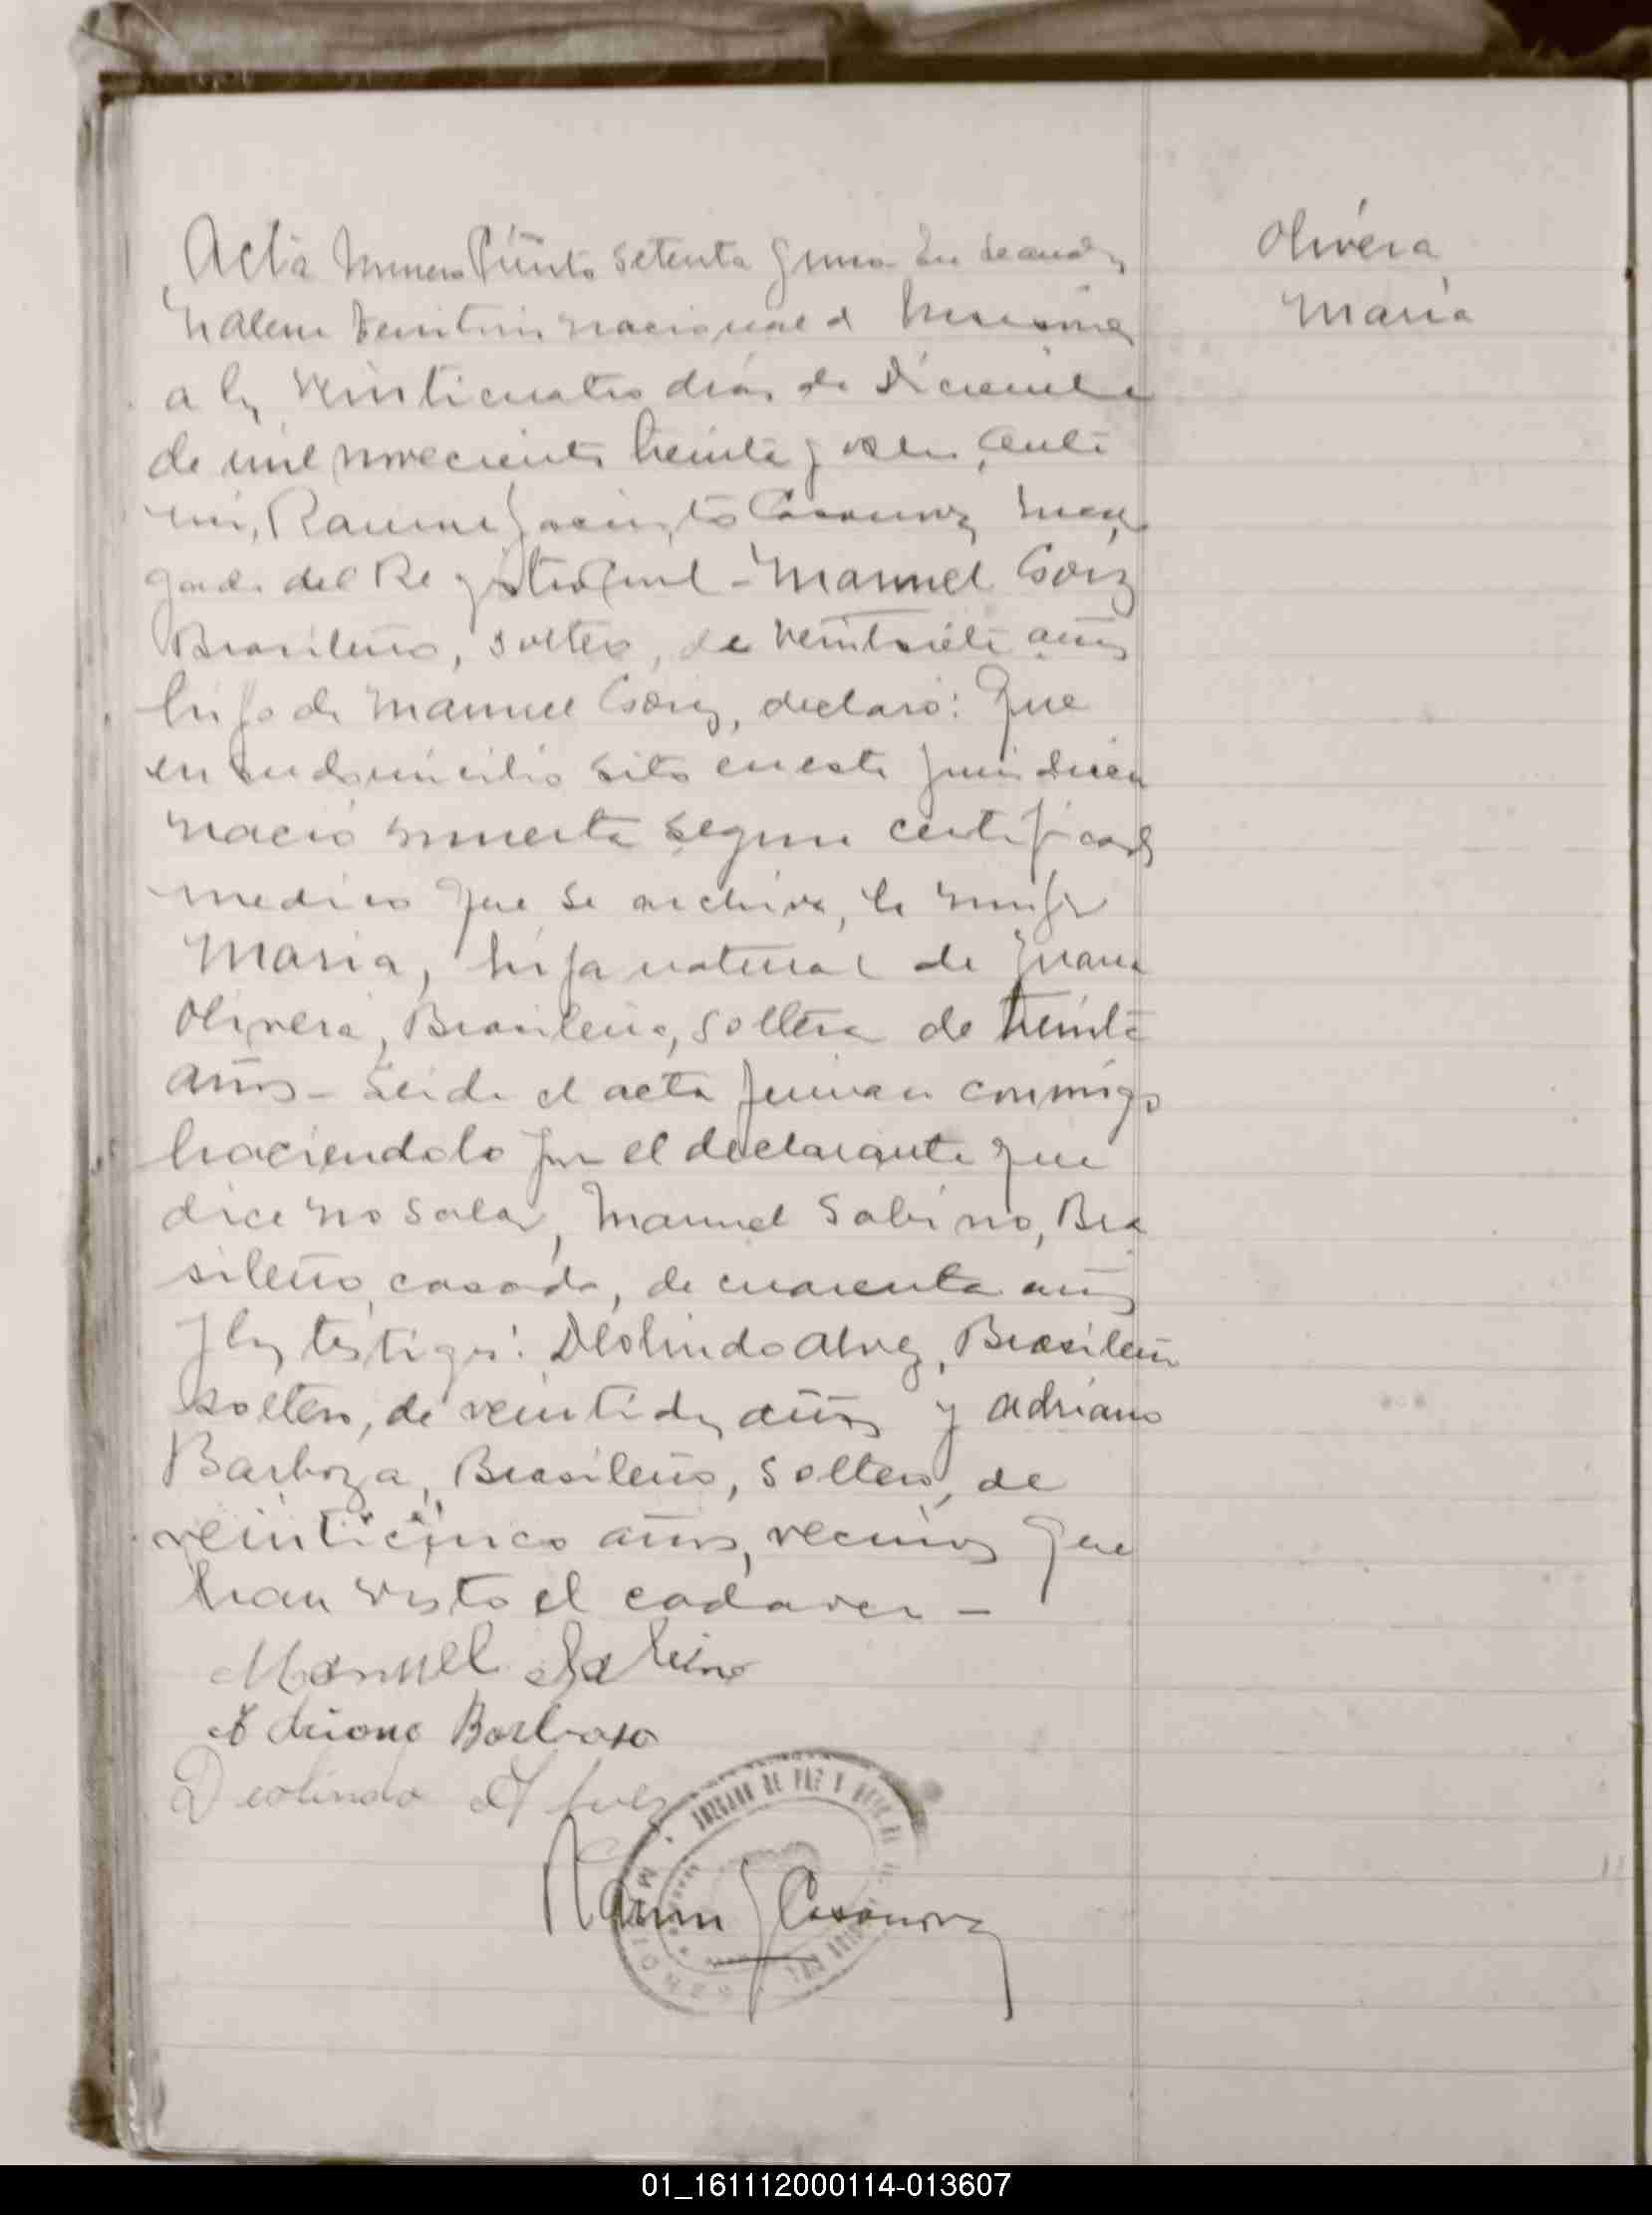 Acta numero Ciento setenta y uno En Leandro
N Alem Territorio nacional de Misiones
a los veinticuatro dias de Diciembre
de mil novecientos treinta y ante
mi, Ramon Jacinto Casanova Encar
gado del Registro Civil - Manuel
Brasileño, soltero, de veintisiete años
hijo de Manuel declaró: Que
en su domicilio sito en esta jurisdiccion
nació muerta segun certificado
medico que se archiva, la mujer
Maria, hija natural de Juana
Olivera, Brasileña, soltera de treinta
años - Leida el acta firman conmigo
haciendolo por el declarante que
dice no saber, Manuel Sabino, Bra
sileño, casado, de cuarenta años
y los testigos: Deolindo Alvez, Brasileño
soltero, de veintidos años y Adriano
Barboza, Brasileño, soltero, de
veinticinco años, vecinos que
han visto el cadaver -
Manuel Sabino
Adriano Barboso
Deolindo Alvez
Ramon J Casanova
JUZGADO DE PAZ Y
MISIONES
Olivera
Maria
01_161112000114-013607